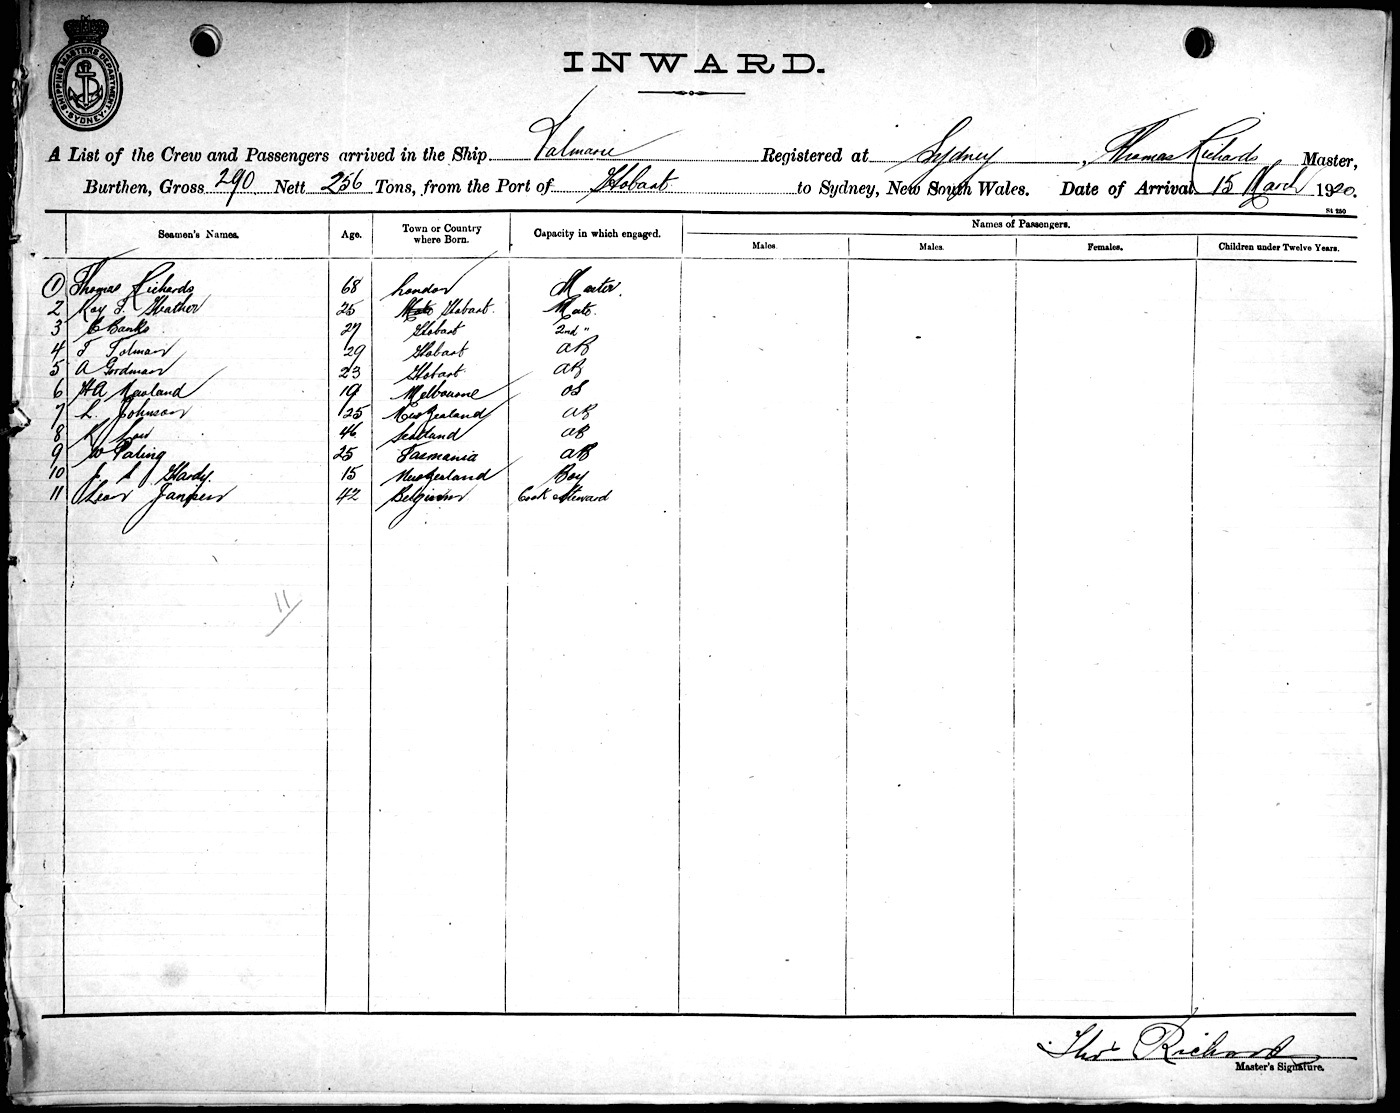 SHIPPING MASTERS DEPARTMENT. SYDNEY
INWARD.
A List of the Crew and Passengers arrived in the Ship Valmarie Registered at Sydney, Thomas Richards Master,
Burthen, Gross 290 Nett 256 Tons, from the Port of Hobart to Sydney, New South Wales. Date of Arrival 15 March 1920.
St 250
Seamen's Names. Age. Town or Country where Born. Capacity in which engaged. Names of Passengers.
Males. Males. Females. Children under Twelve Years.
1 Thomas Richards 68 London Master.
2 Roy F. Heather 25 Hobart. Mate.
3 C Banks 27 Hobart 2nd "
4 F Tolman 29 Hobart AB
5 A Gordman 23 Hobart AB
6 HA Newland 19 Melbourne OS
7 L. Johnson 25 New Zealand AB
8 46 Scotland AB
9 W Paling 25 Tasmania AB
10 J. L. Hardy. 15 New Zealand Boy
11 Leon Janssen 42 Belgium Cook & Steward
11
Thos Richards
Master's Signature.